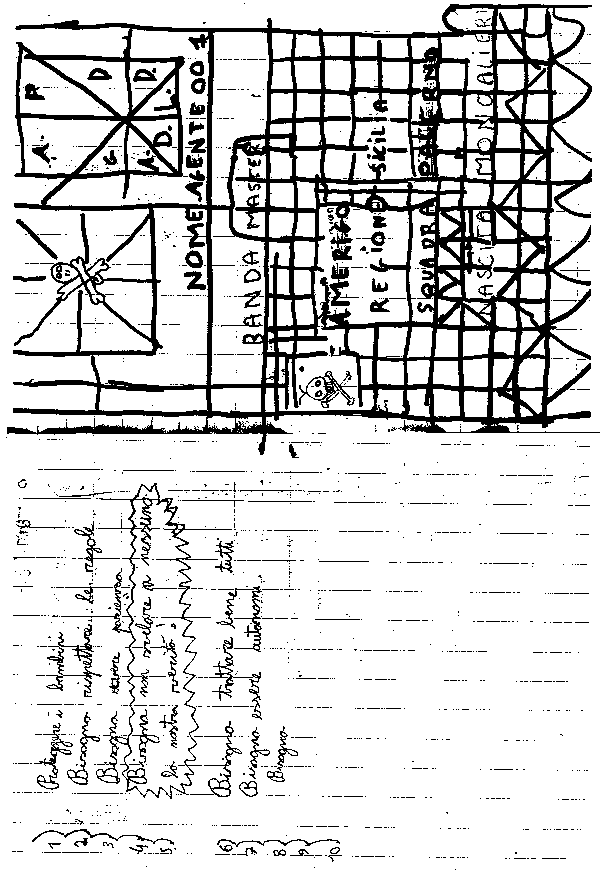 P. D D.
A. G A. D. L.
NOME AGENTE 001
BANDA MASTER
AMERIGO
REGIONE SICILIA
SQUADRA PATERNO
NASCITA MONCALIERI
1) Proteggere i bambini
2) Bisogna rispettare le regole
3) Bisogna avere pazienza
4) Bisogna non svelare a nessuno
5) la nostra verità
6) Bisogna trattare bene tutti
7) Bisogna essere autonomi
8) Bisogna
9)
10)